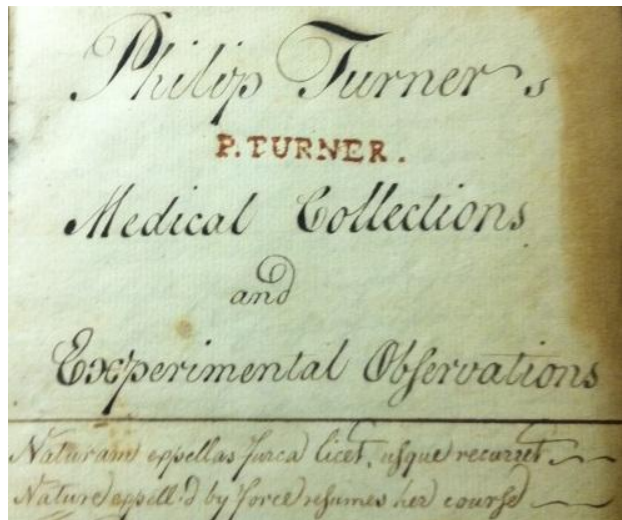 Philip Turner's
P. TURNER.
Medical Collections
and
Experimental Obſervations
Naturam expellas furca licet, uſque recurret
Nature expell'd by force reſumes her courſe